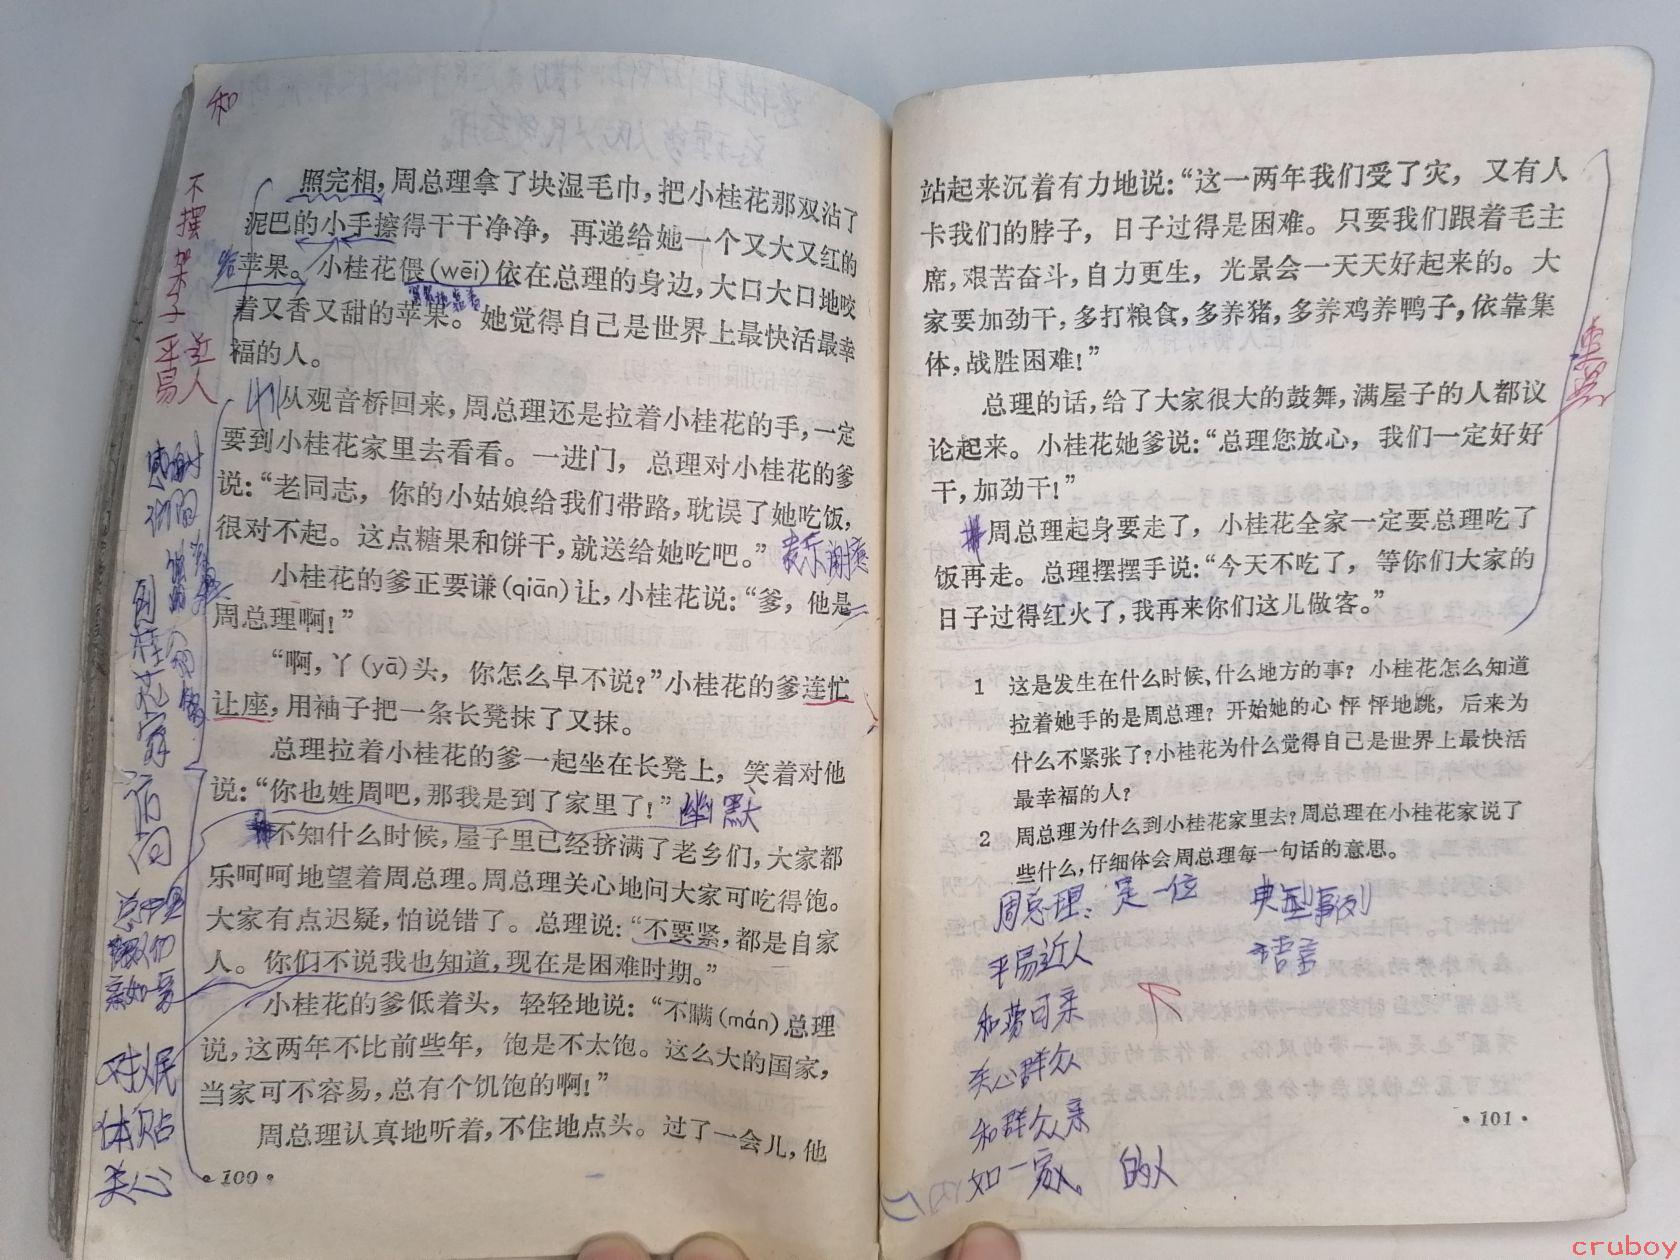 和
不
摆
架子
平易
近人
照完相，周总理拿了块湿毛巾，把小桂花那双沾了
泥巴的小手擦得干干净净，再递给她一个又大又红的
苹果。小桂花偎(wēi)依在总理的身边，大口大口地咬
着又香又甜的苹果。她觉得自己是世界上最快活最幸
福的人。
从观音桥回来，周总理还是拉着小桂花的手，一定
要到小桂花家里去看看。一进门，总理对小桂花的爹
说：“老同志，你的小姑娘给我们带路，耽误了她吃饭，
很对不起。这点糖果和饼干，就送给她吃吧。”
小桂花的爹正要谦(qiān)让，小桂花说：“爹，他是
周总理啊！”
“啊，丫(yā)头，你怎么早不说？”小桂花的爹连忙
让座，用袖子把一条长凳抹了又抹。
总理拉着小桂花的爹一起坐在长凳上，笑着对他
说：“你也姓周吧，那我是到了家里了！”
幽默
不知什么时候，屋子里已经挤满了老乡们，大家都
乐呵呵地望着周总理。周总理关心地问大家可吃得饱。
大家有点迟疑，怕说错了。总理说：“不要紧，都是自家
人。你们不说我也知道，现在是困难时期。”
小桂花的爹低着头，轻轻地说：“不瞒(mán)总理
说，这两年不比前些年，饱是不太饱。这么大的国家，
当家可不容易，总有个饥饱的啊！”
周总理认真地听着，不住地点头。过了一会儿，他
到桂花家
访问
对人民
体贴
关心
·100·
站起来沉着有力地说：“这一两年我们受了灾，又有人
卡我们的脖子，日子过得是困难。只要我们跟着毛主
席，艰苦奋斗，自力更生，光景会一天天好起来的。大
家要加劲干，多打粮食，多养猪，多养鸡养鸭子，依靠集
体，战胜困难！”
总理的话，给了大家很大的鼓舞，满屋子的人都议
论起来。小桂花她爹说：“总理您放心，我们一定好好
干，加劲干！”
周总理起身要走了，小桂花全家一定要总理吃了
饭再走。总理摆摆手说：“今天不吃了，等你们大家的
日子过得红火了，我再来你们这儿做客。”
1 这是发生在什么时候、什么地方的事？小桂花怎么知道
拉着她手的是周总理？开始她的心怦怦地跳，后来为
什么不紧张了？小桂花为什么觉得自己是世界上最快活
最幸福的人？
2 周总理为什么到小桂花家里去？周总理在小桂花家说了
些什么，仔细体会周总理每一句话的意思。
周总理：是一位 典型事例
平易近人 语言
和蔼可亲
关心群众
和群众亲
如一家。的人
·101·
cruboy